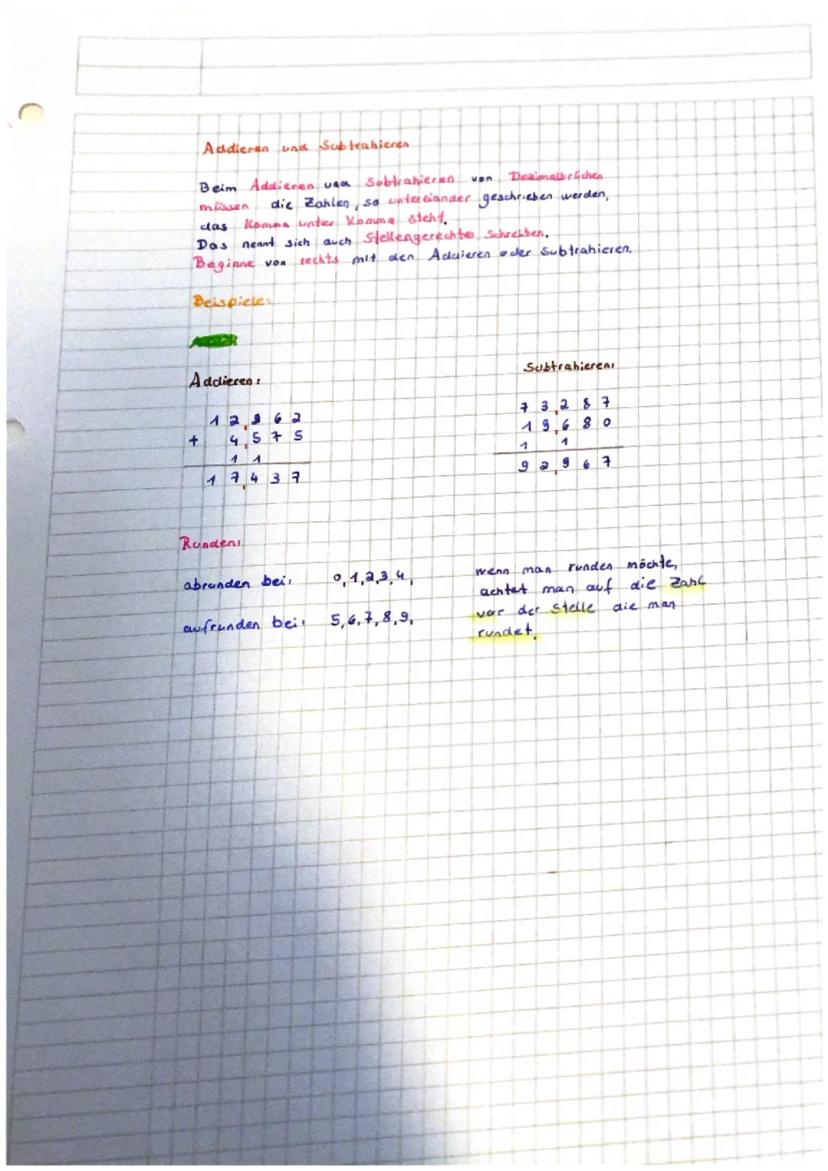 Addieren und Subtrahieren
Beim Addieren und Subtrahieren von Dezimalbrüchen
müssen die Zahlen, so untereinander geschrieben werden,
das Komma unter Komma steht.
Das nennt sich auch Stellengerechtes Schreiben.
Beginne von rechts mit den Addieren oder Subtrahieren.
Beispiele:
Addieren:
12,862
+ 4,575
1 1
17,437
Subtrahieren:
73,287
19,680
1 1
92,967
Runden:
abrunden bei: 0,1,2,3,4,
aufrunden bei: 5,6,7,8,9,
wenn man runden möchte,
achtet man auf die Zahl
vor der Stelle die man
rundet.